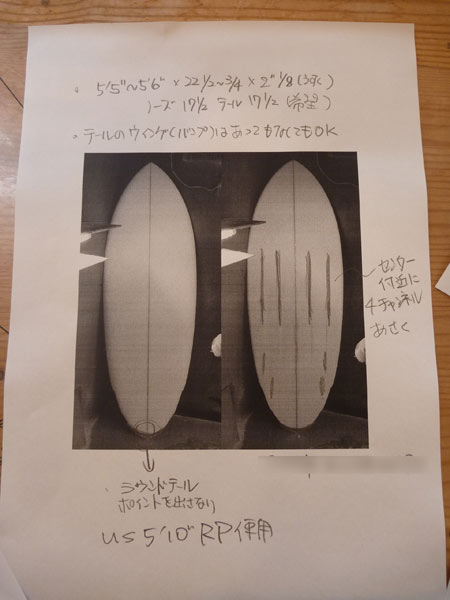 。5'5"~5'6" × 22 1/2~3/4 × 2" 1/8 (うすく)
ノーズ 17 1/2 テール 17 1/2 (希望)
。テールのウィング(バンプ)はあってもなくてもOK
センター
付近に
4チャンネル
あさく
ラウンドテール
ポイントを出さない
US 5'10" RP使用